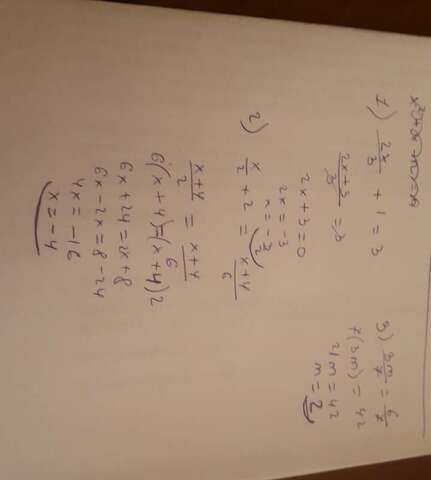 1) 2x/3 + 1 = 3
2x+3/3 = 3
2x + 3 = 0
2x = -3
x = -3/2
2) x/2 + 2 = x+4/6
x+4/2 = x+4/6
6(x+4)=(x+4)2
6x+24=2x+8
6x-2x=8-24
4x = -16
x = -4
3) 3m/7 = 6/7
7(3m) = 42
21m = 42
m = 2